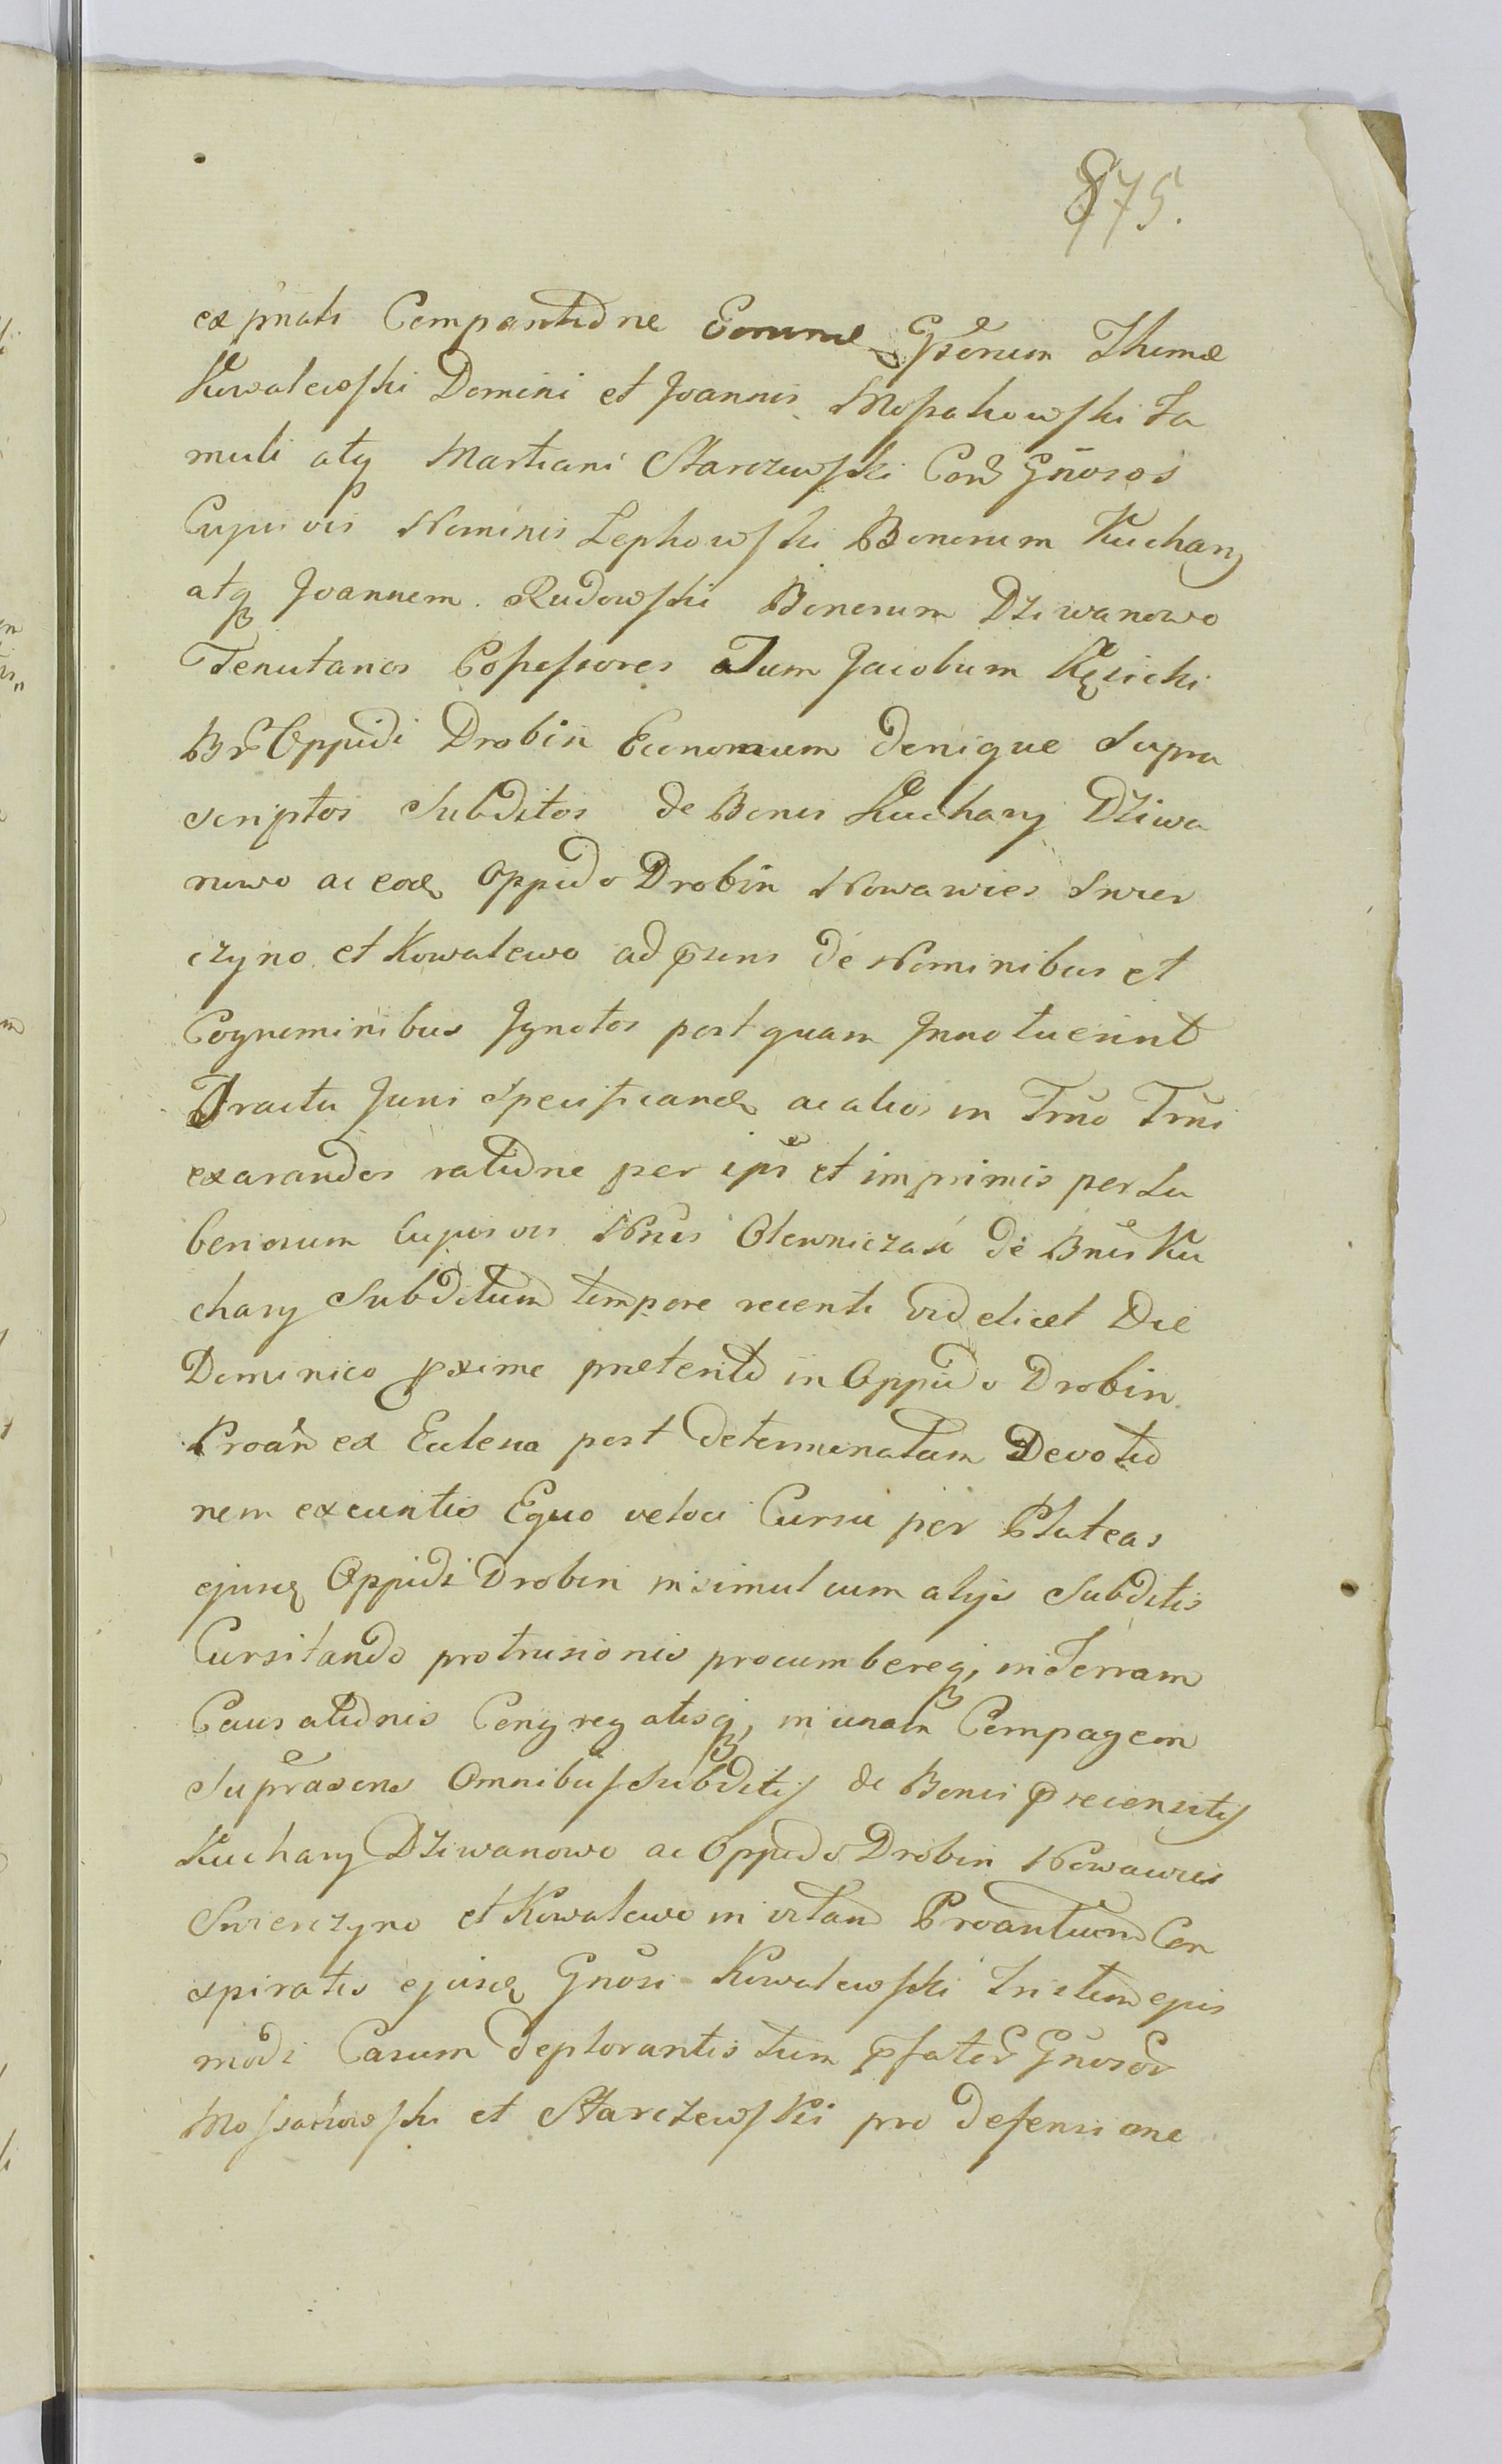 875.
ex pñati Comparitiõne Gõsorum Thomæ
Kowalewski Domini et Joannis Mossakowski Fa
muli atq̃ Martiani Starczewski Con̄ G̃nosos
Cujusvis Nominis Lephowski Bonorum Kuchary
atq̃ Joannem Rudowski Bonorum Dziwanowo
Tenutarios Possessores Tum Jacobum Kęsicki
Oppidi Drobin Economum denique Supra
scriptos Subditos de Bonis Kuchary Dziwa
nowo ac eod̃ Oppido Drobin Nowawies Swier
czyno et Kowalewo ad p̃sens de Nominibus et
Cognominibus Ignotos postquam Innotuerint
Tractu Juris Specificand̃ ac alios in Trño Trñi
exarandos ratiõne per ip̃s et imprimis per La
boriosum Cujusvis Nñis Olewniczak de Bñis Ku
chary Subditum tempore recenti videlicet Die
Dominico p̃xime preterito in Oppido Drobin
Proañ ex Eccleña post determinatam Devotiõ
nem exeuntis Equo veloci Cursu per Plateas
ejusd̃ Oppidi Drobin insimul cum alijs Subditis
Cursitando protrusionis procumbereq̃, in Terram
Causatiõnis Congregatisq̃, in unam Compagem
Suprasens Omnibus Subditis de Bonis p̃recensitis
Kuchary Dziwanowo ac Oppido Drobin Nowawies
Swierczyno et Kowalewo in vitam Proantium Con
spiratis ejusd̃ Gñosi Kowalewski Tristem ejus
modi Casum deplorantis tum p̃fator̃ Gñosor̃
Mossakowski et Starczewski pro defensione